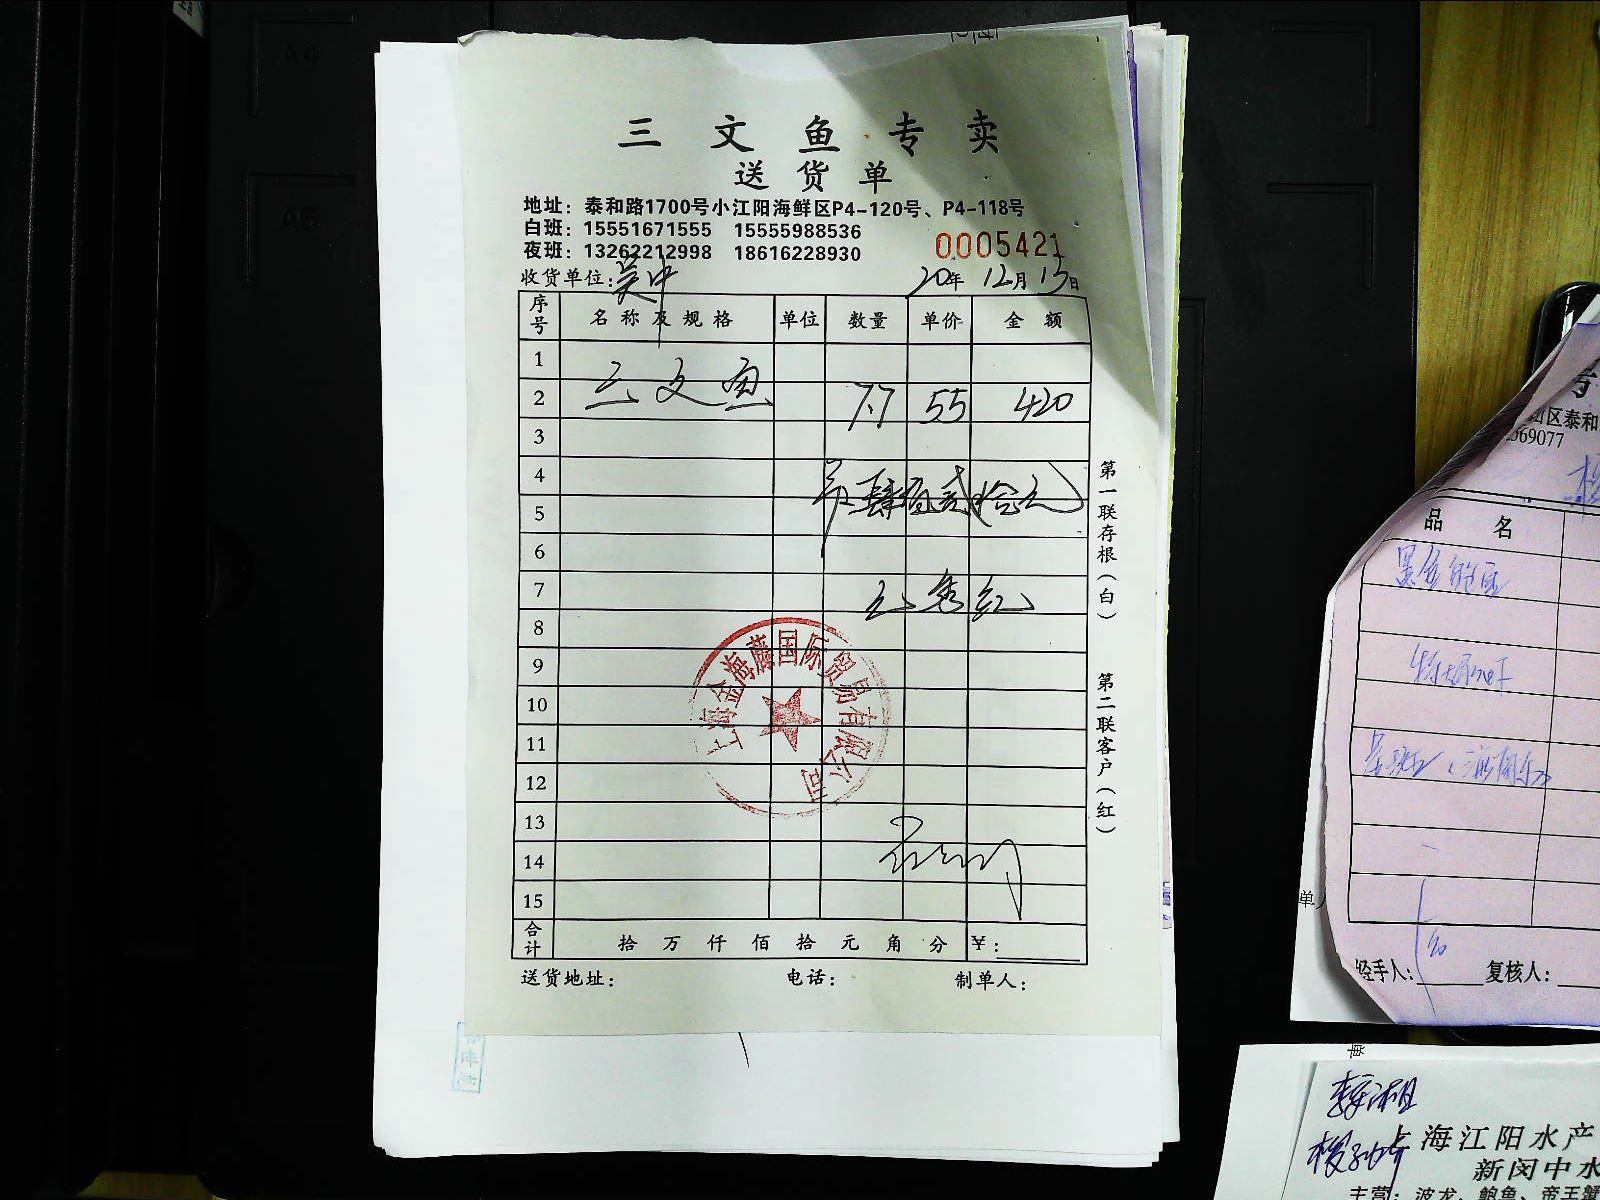 三文鱼专卖
送货单
地址：泰和路1700号小江阳海鲜区P4-120号、P4-118号
白班：15551671555 15555988536
夜班：13262212998 18616228930
0005421
收货单位：吴中
20年12月15日
序号 名称及规格 单位 数量 单价 金额
1
2 三文鱼 7.7 55 420
3
4
5 肆佰贰拾元
6
7
8
9
10
11
12
13
14
15
合计 拾万仟佰拾元角分 ¥：
送货地址： 电话： 制单人：
第一联存根（白）
第二联客户（红）
上海金海藤国际贸易有限公司
区泰和
569077
品名
经手人： 复核人：
单
单
上海江阳水产
新闵中水
主营：波龙、鲍鱼、帝王蟹